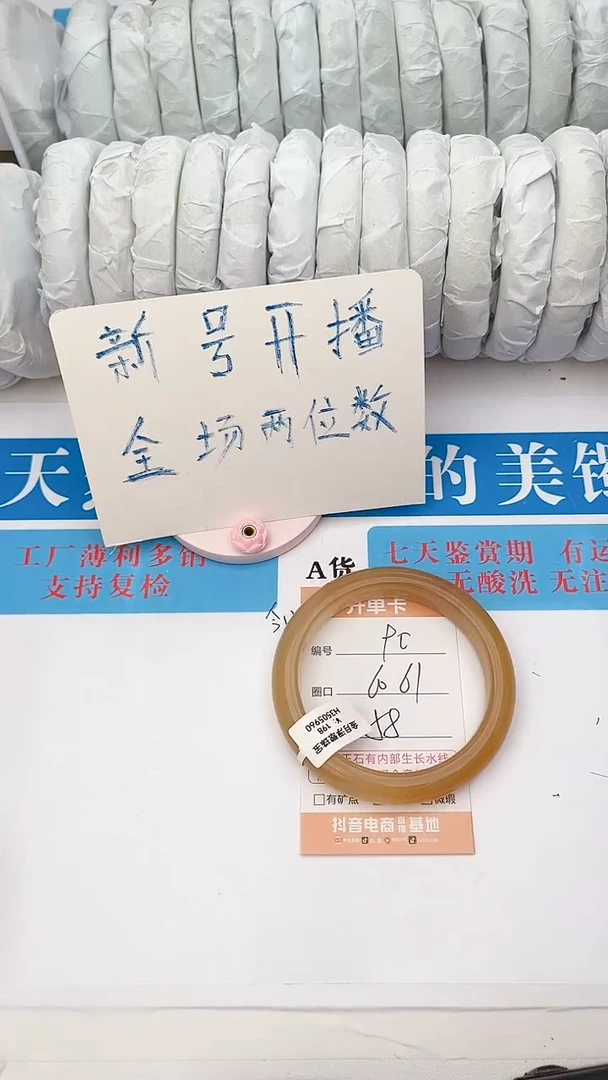 新号开播
全场两位数
天
的美镯
工厂薄利多销
支持复检
A货
七天鉴赏期 有运
无酸洗 无注
开单卡
编号 PC
圈口 60 61
58
金月浮翠珠宝
¥: 198
H3505960
玉石有内部生长水线
有矿点
微瑕
抖音电商直播基地